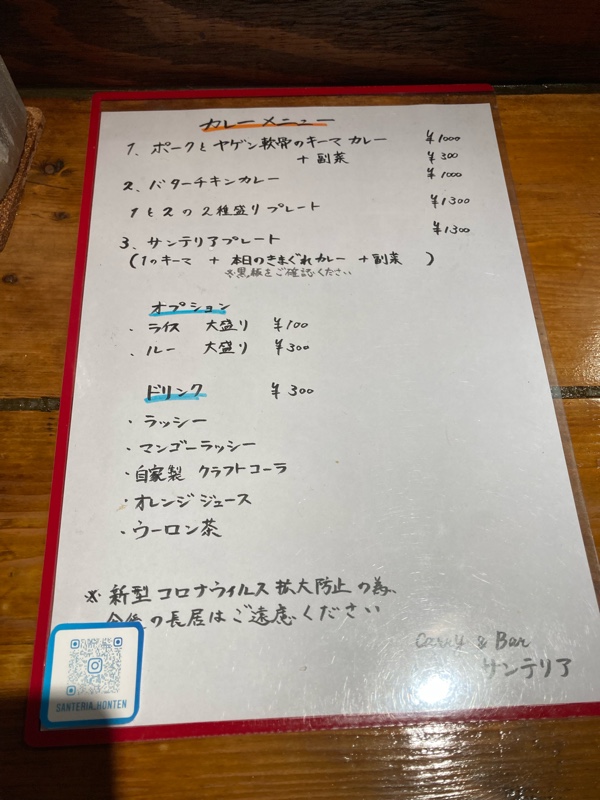 カレーメニュー
1、ポークとヤゲン軟骨のキーマカレー ¥1000
+副菜 ¥300
2、バターチキンカレー ¥1000
1と2の2種盛りプレート ¥1300
3、サンテリアプレート ¥1300
(1のキーマ + 本日のきまぐれカレー +副菜 )
※黒板をご確認ください
オプション
・ライス 大盛り ¥100
・ルー 大盛り ¥300
ドリンク ¥300
・ラッシー
・マンゴーラッシー
・自家製 クラフトコーラ
・オレンジジュース
・ウーロン茶
※新型コロナウイルス拡大防止の為、
の長居はご遠慮ください
Curry & Bar
サンテリア
SANTERIA_HONTEN